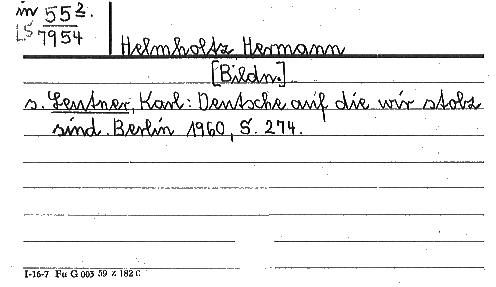 in 55².
LS 7954
Helmholtz Hermann
[Bildn.]
s. Leutner, Karl: Deutsche auf die wir stolz
sind. Berlin 1960, S. 274.
I-16-7 Fu G 003 59 Z 182 C